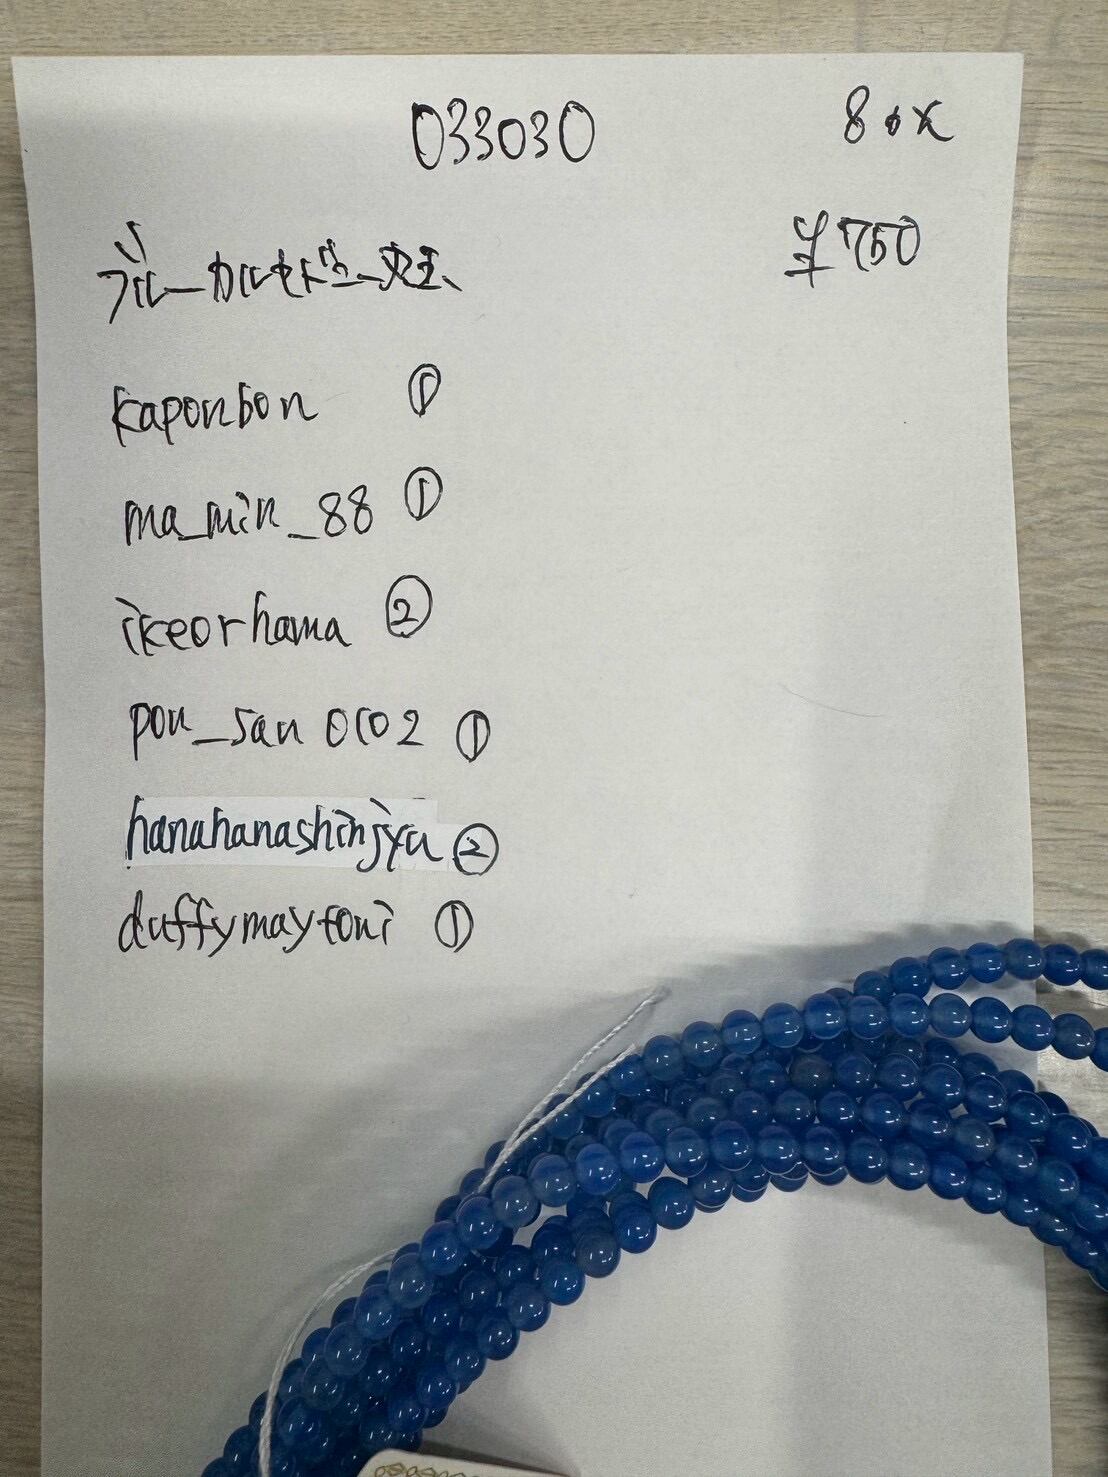 033030
¥750
kaponbon ①
ma_min_88 ①
ikeorhama ②
pon_san 0102 ①
hanahanashinjyu ②
duffymaytoni ①